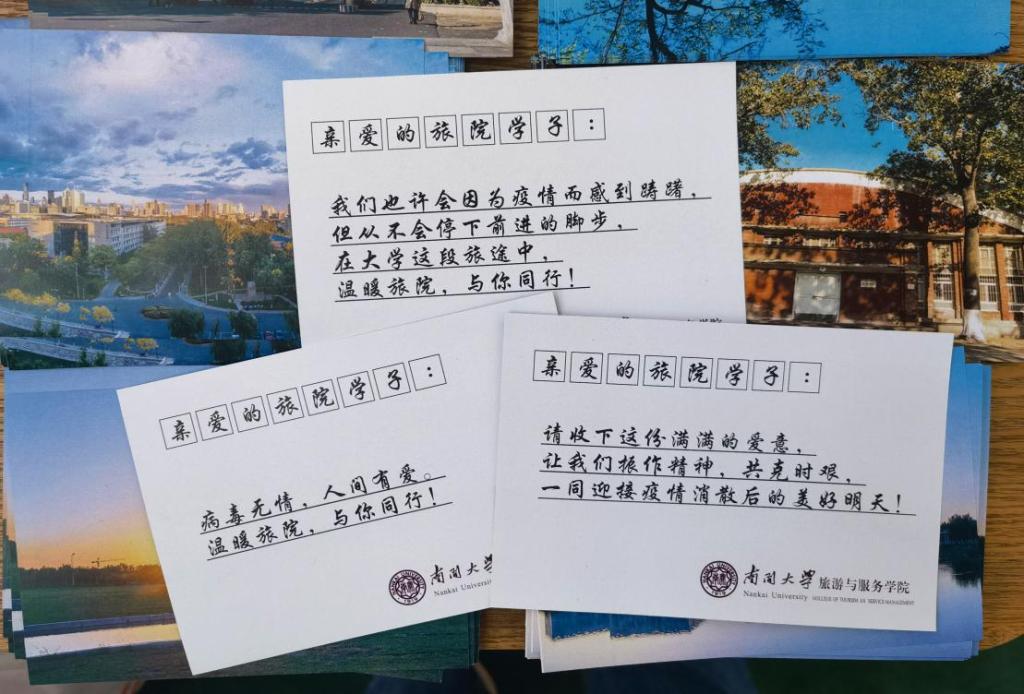 亲爱的旅院学子：
我们也许会因为疫情而感到踌躇，
但从不会停下前进的脚步，
在大学这段旅途中，
温暖旅院，与你同行！
亲爱的旅院学子：
病毒无情，人间有爱。
温暖旅院，与你同行！
南開大學
Nankai University
亲爱的旅院学子：
请收下这份满满的爱意，
让我们振作精神，共克时艰，
一同迎接疫情消散后的美好明天！
南開大學 旅游与服务学院
Nankai University COLLEGE OF TOURISM AND SERVICE MANAGEMENT